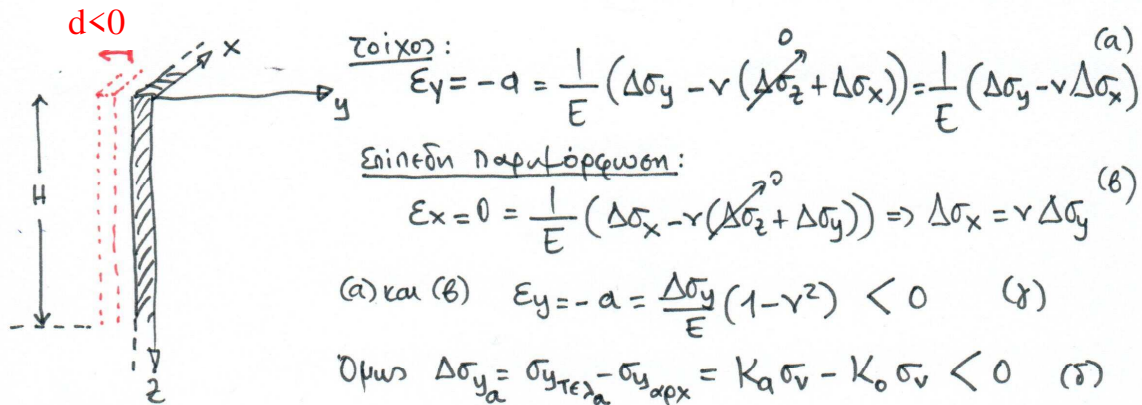 d<0
x
y
H
z
τοίχος:
εy = -α = 1/E (Δσy - ν(Δσz + Δσx)) = 1/E (Δσy - νΔσx) (α)
0
Επίπεδη παραμόρφωση:
εx = 0 = 1/E (Δσx - ν(Δσz + Δσy)) => Δσx = νΔσy (β)
0
(α) και (β) εy = -α = Δσy/E (1-ν²) < 0 (γ)
Όμως Δσyₐ = σyτελₐ - σyαρχ = Kₐσv - K₀σv < 0 (δ)